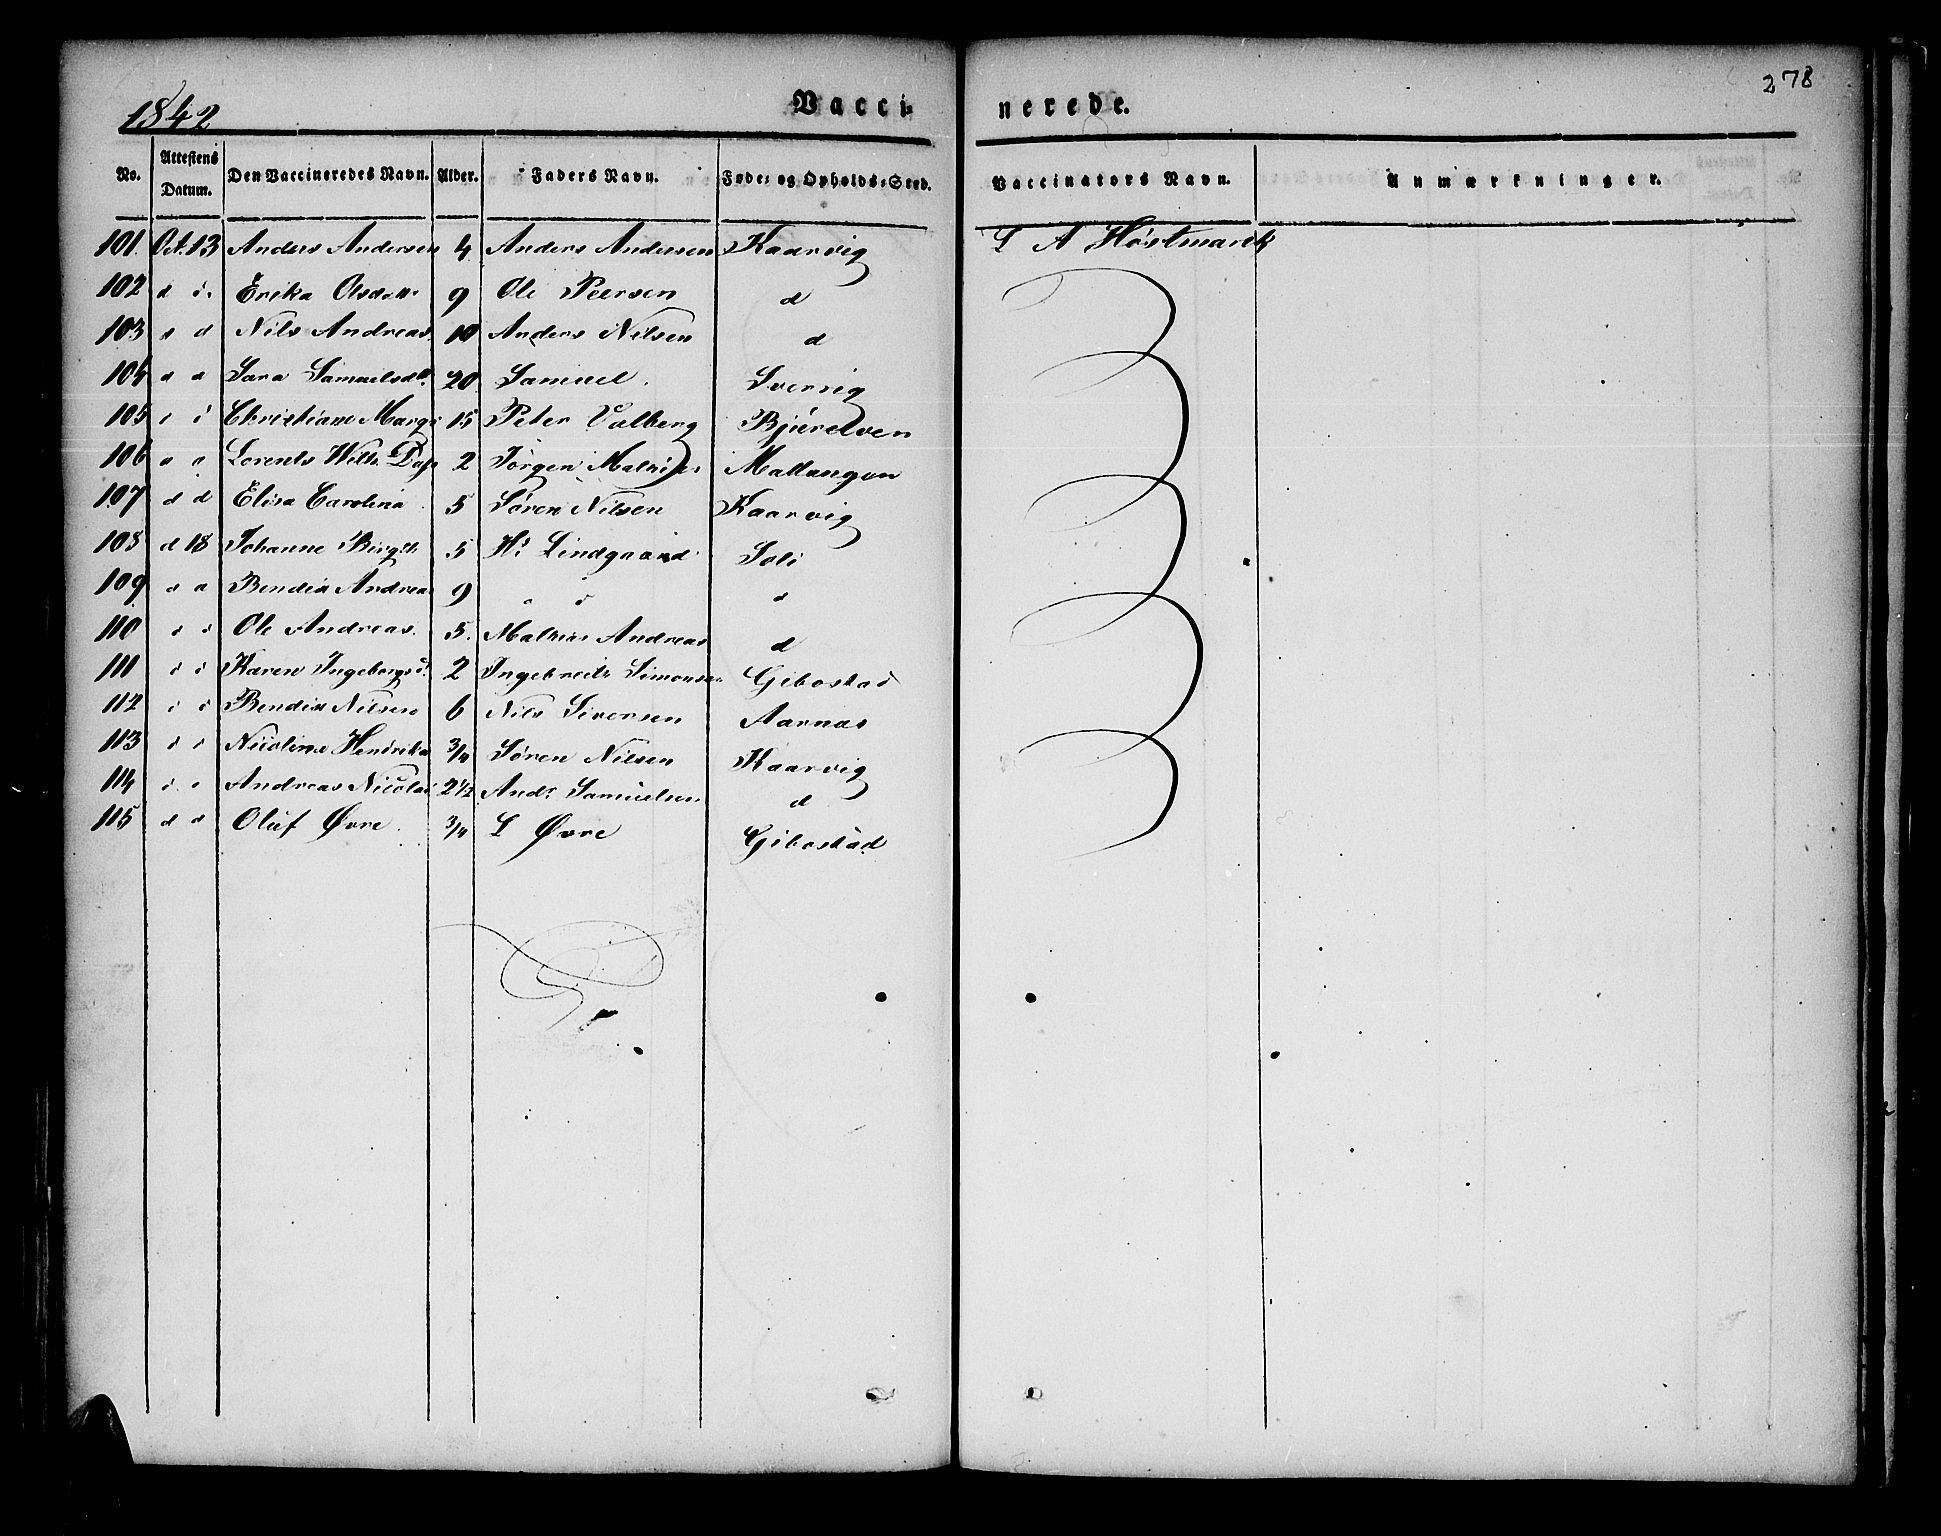 278
1842 Vaccinerede.
No. Attestens Datum. Den Vaccineredes Navn. Alder. Faders Navn. Føde- og Opholds-Sted. Vaccinators Navn. Anmærkninger.
101. Oct. 13 Anders Andersen 4 Anders Andersen Kaarvig L A Høstmarck
102 d d Erika Olsdatt. 9 Ole Peersen d
103 d d Nils Andreas 10 Anders Nilsen d
104 d d Sara Samuelsd. 20 Samuel Svervig
105 d d Christiane Margr 15 Peter Valberg Bjørelven
106 d d Lorents Wilh. 2 Jørgen Mathis Mallangen
107 d d Elisa Carolina 5 Søren Nilsen Kaarvig
108 d 18 Johanne Birgth 5 H: Lindgaard Soli
109 d d Bendix Andreas 9 " d d
110 d d Ole Andreas 5. Mathis Andreas d
111 d d Karen Ingeborg 2 Ingebregt Simonsen Gibostad
112 d d Bendix Nilsen 6 Nils Siversen Aarnæs
113 d d Nicolina Hendrika 3/4 Søren Nilsen Kaarvig
114 d d Andreas Nicolai 2 1/2 Andr Samuelsen d
115 d d Oluf Øvre 3/4 L Øvre Gibostad